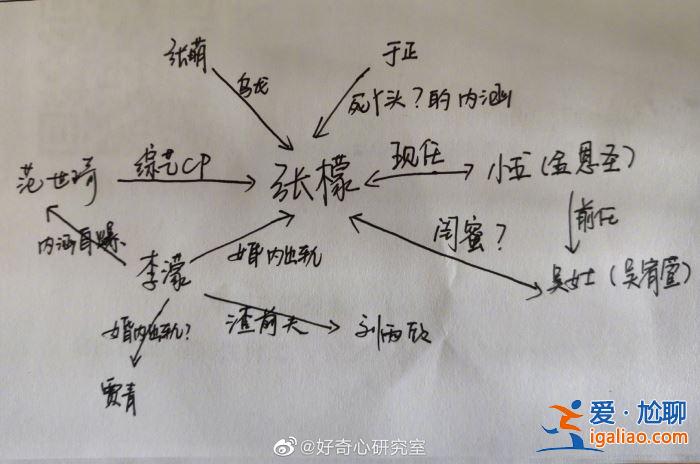 张萌
于正
乌龙
死丫头？的内涵
范世琦
综艺CP
张檬
现任
小五（金恩圣）
内涵自爆
李濛
婚内出轨
闺蜜？
前任
吴女士（吴宥萱）
婚内出轨？
渣前夫
刘雨欣
贾青
@好奇心研究室
爱·尬聊
igaliao.com